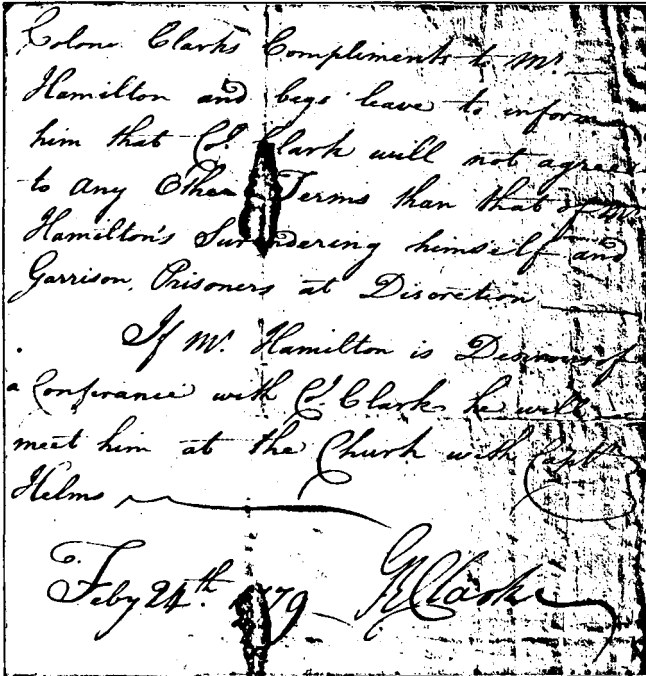 Colone Clarks Compliments to Mr.
Hamilton and begs leave to inform
him that Col. Clark will not agree
to any Other Terms than that of Mr.
Hamilton's Surendering himself and
Garrison, Prisoners at Discretion
If Mr. Hamilton is Desirous of
a Conferance with Col. Clark he will
meet him at the Church with Captn
Helms
Feby 24th. 1779 GR Clark